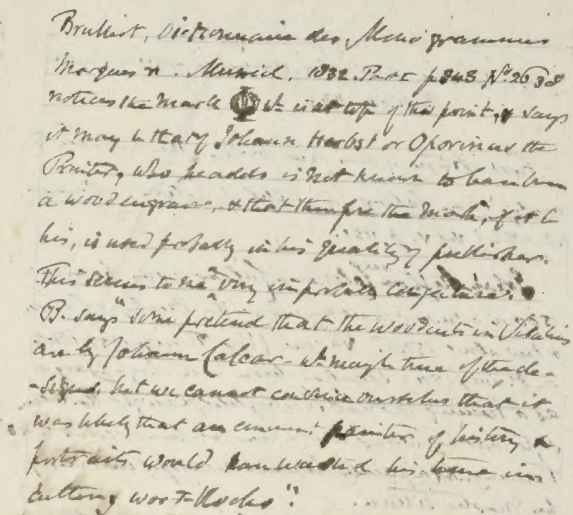 Brulliot, Dictionnaire des Monogrammes
Marques &. Munich. 1832. Part p 343 No 2638
notices the mark wh is at top of the print, & says
it may be that of Johann Herbst or Oporinus the
Printer, who he adds is not known to have been
a wood engraver, & that therefore the mark, if it be
his, is used probably in his quality of publisher.
This seems to me very improbable conjecture.
B. says "some pretend that the woodcuts in Vesalius
are by Johann Calcar - wh may be true of the de-
-signs, but we cannot convince ourselves that it
was likely that an eminent painter of history &
portraits would have wasted his time in
cutting wood-blocks".